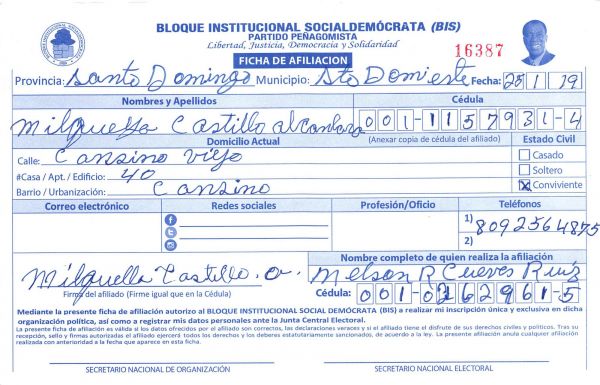 BLOQUE INSTITUCIONAL SOCIALDEMÓCRATA (BIS)
PARTIDO PEÑAGOMISTA
Libertad, Justicia, Democracia y Solidaridad
16387
FICHA DE AFILIACION
Provincia: Santo Domingo Municipio: Sto Dom este Fecha: 25/1/19
Nombres y Apellidos Cédula
Milquella Castillo alcantara 001-1157931-4
Domicilio Actual (Anexar copia de cédula del afiliado) Estado Civil
Calle: Cansino viejo Casado
#Casa / Apt. / Edificio: 40 Soltero
Barrio / Urbanización: Cansino Conviviente
Correo electrónico Redes sociales Profesión/Oficio Teléfonos
1) 8092564875
2)
Nombre completo de quien realiza la afiliación
Milquella Castillo. a. Nelson R Cueves Ruiz
Firma del afiliado (Firme igual que en la Cédula) Cédula: 001-0362961-5
Mediante la presente ficha de afiliación autorizo al BLOQUE INSTITUCIONAL SOCIAL DEMÓCRATA (BIS) a realizar mi inscripción única y exclusiva en dicha
organización política, así como a registrar mis datos personales ante la Junta Central Electoral.
La presente ficha de afiliación es válida si los datos ofrecidos por el afiliado son correctos, las declaraciones veraces y si el afiliado tiene el disfrute de sus derechos civiles y políticos. Tras su
recepción, sello y firmas autorizadas el afiliado ejercerá todos los derechos y los deberes estatutariamente sancionados, de acuerdo a la ley. La presente afiliación anula cualquier afiliación
realizada con anterioridad a la fecha que aparece en esta ficha.
SECRETARIO NACIONAL DE ORGANIZACIÓN SECRETARIO NACIONAL ELECTORAL